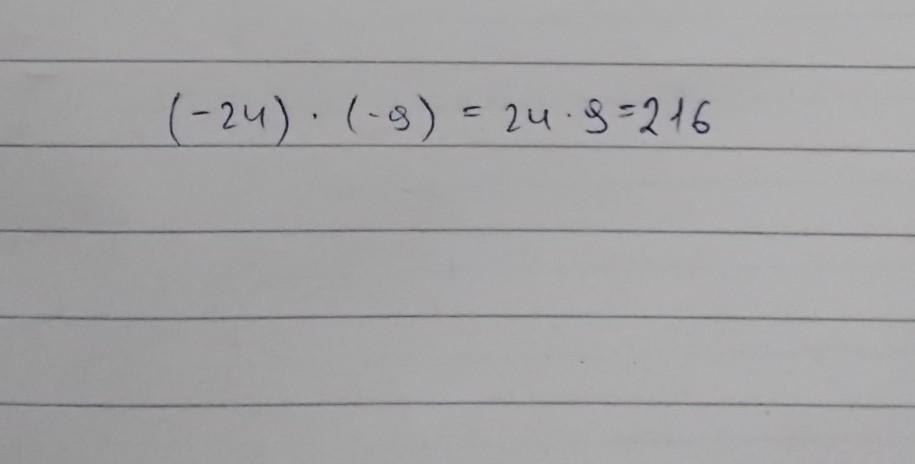 (-24) · (-9) = 24 · 9 = 216